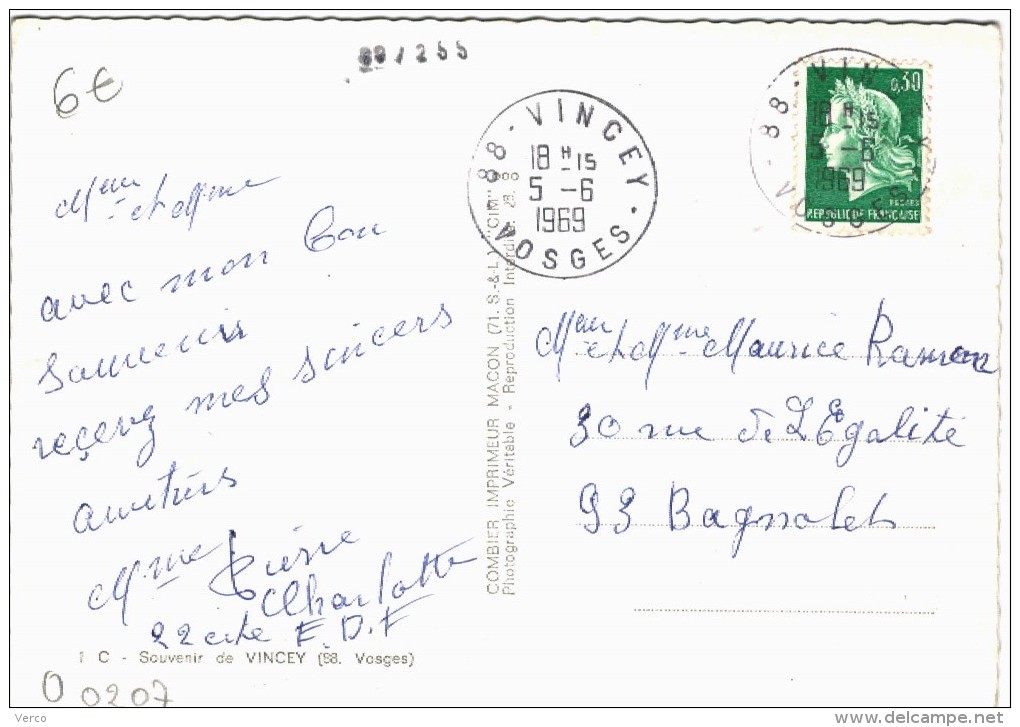 6€
88/255
Meur et Mme
avec mon bon
Souvenir
reçevez mes sincers
amitiérs
Mme Pierre
Charlotte
22 cité E.D.F
1 C - Souvenir de VINCEY (88. Vosges)
0 0207
COMBIER IMPRIMEUR MACON (71. S.-&-L.) "CIM"
Photographie Véritable - Reproduction Interdite.
88 - VINCEY
18 H 15
5 - 6
1969
VOSGES
88 - VIN
0,30
18 H 15
5 - 6
1969
VOSGES
REPUBLIQUE FRANCAISE
Meur et Mme Maurice
30 rue de L'Egalité
93 Bagnolet
Verco
www.delcampe.net